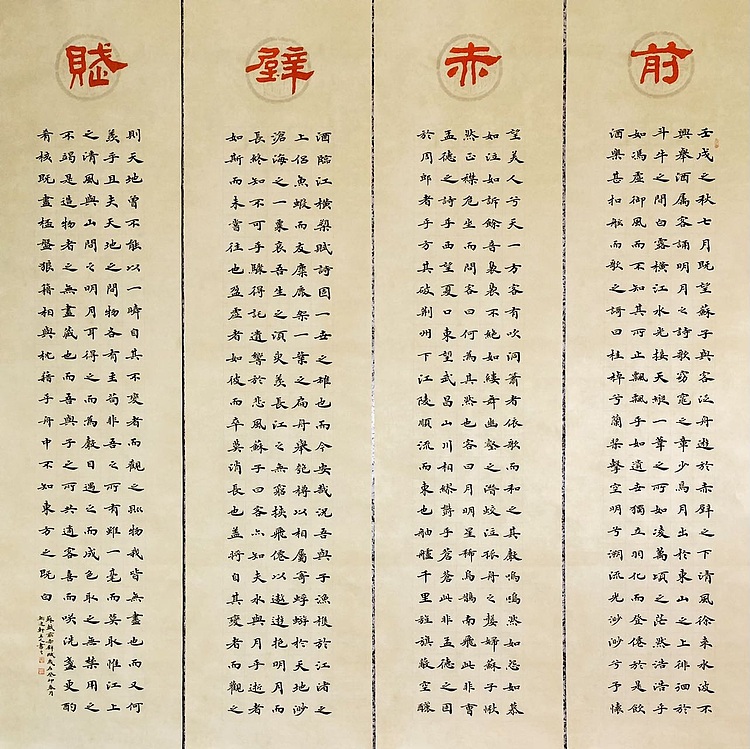 前
壬戌之秋七月既望蘇子與客泛舟遊於赤壁之下清風徐來水波不
興舉酒屬客誦明月之詩歌窈窕之章少焉月出於東山之上徘徊於
斗牛之間白露橫江水光接天縱一葦之所如凌萬頃之茫然浩浩乎
如馮虛御風而不知其所止飄飄乎如遺世獨立羽化而登僊於是飲
酒樂甚扣舷而歌之謌曰桂棹兮蘭槳擊空明兮溯流光渺渺兮予懷
赤
望美人兮天一方客有吹洞簫者依歌而和之其聲嗚嗚然如怨如慕
如泣如訴餘音裊裊不絕如縷舞幽壑之潛蛟泣孤舟之嫠婦蘇子愀
然正襟危坐而問客曰何為其然也客曰月明星稀烏鵲南飛此非曹
孟德之詩乎西望夏口東望武昌山川相繆鬱乎蒼蒼此非孟德之困
於周郎者乎方其破荊州下江陵順流而東也舳艫千里旌旗蔽空釃
壁
酒臨江橫槊賦詩固一世之雄也而今安哉況吾與子漁樵於江渚之
上侶魚蝦而友麋鹿駕一葉之扁舟舉匏樽以相屬寄蜉蝣於天地渺
滄海之一粟哀吾生之須臾羨長江之無窮挾飛僊以遨遊抱明月而
長終知不可乎驟得託遺響於悲風蘇子曰客亦知夫水與月乎逝者
如斯而未嘗往也盈虛者如彼而卒莫消長也蓋將自其變者而觀之
賦
則天地曾不能以一瞬自其不變者而觀之則物我皆無盡也而又何
羨乎且夫天地之間物各有主苟非吾之所有雖一毫而莫取惟江上
之清風與山間之明月耳得之而為聲目遇之而成色取之無禁用之
不竭是造物者之無盡藏也而吾與子之所共適客喜而笑洗盞更酌
肴核既盡杯盤狼籍相與枕藉乎舟中不知東方之既白
蘇軾前赤壁賦歲在癸卯春月